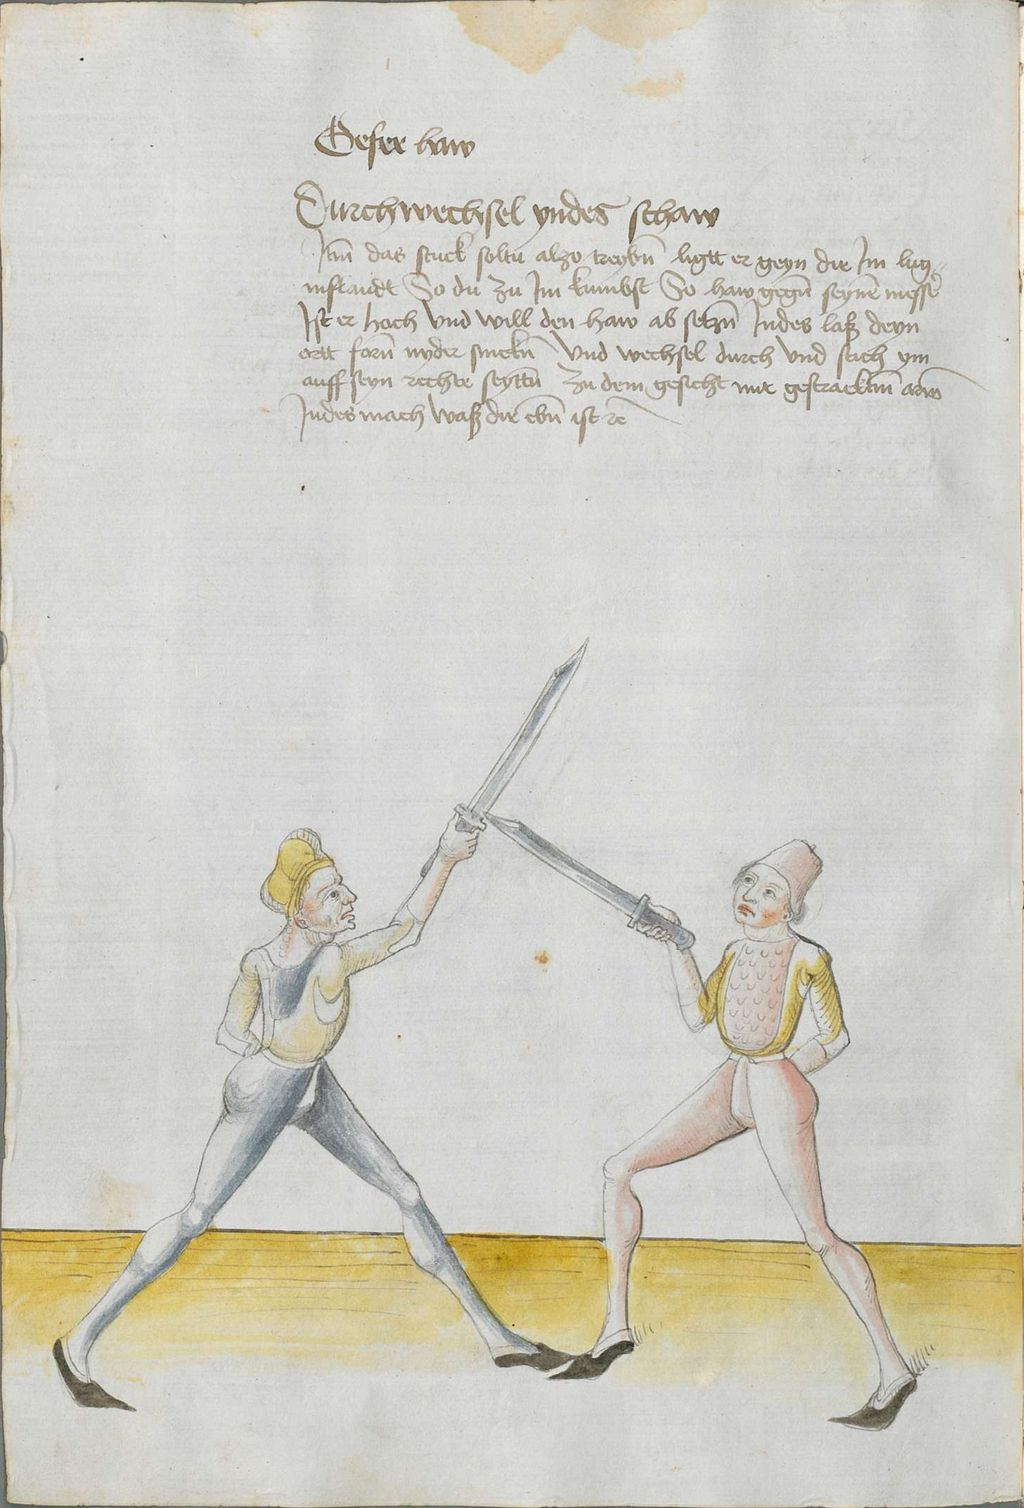 Gefer haw
Durchwechsel yndes schaw
Itm̄ das stuck soltu alzo treybn̄ ligtt er geyn dir Im lug
inslandt So du zu Im kumbst So haw gegn̄ seynē messeʳ
Ist er hoch Vnd will den haw ab setzn̄ Indes laß deyn
ortt forn̄ nyder sinckn̄ Vnd wechsel durch Vnd stich ym
auff seyn rechte seyttn̄ zu dem gesicht mit gestracktm̄ arm
Indes mach waß dir ebn̄ ist rc̄